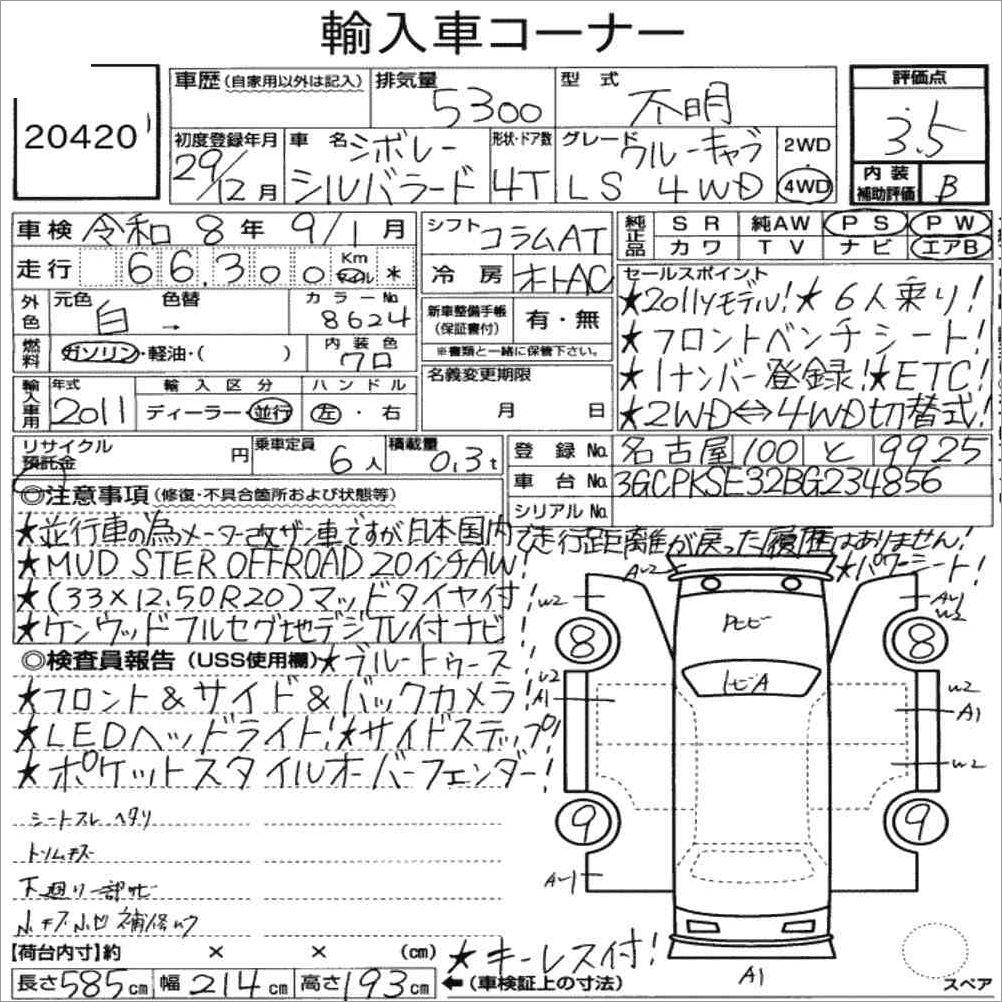 輸入車コーナー
20420
車歴 (自家用以外は記入)
排気量 5300
型式 不明
評価点 3.5
初度登録年月 29/12月
車名 シボレー シルバラード
形状・ドア数 4T
グレード クルーキャブ LS 4WD
2WD
4WD
内装補助評価 B
車検 令和 8年 9/1月
走行 66,300 Km マイル *
シフト コラムAT
冷房 オートAC
純正品 SR 純AW PS PW
カワ TV ナビ エアB
外色 元色 白 → 色替
カラーNo. 8624
燃料 ガソリン・軽油・( )
内装色 クロ
新車整備手帳(保証書付) 有・無
※書類と一緒に保管下さい。
名義変更期限 月 日
セールスポイント
★2011yモデル!★6人乗り!
★フロントベンチシート!
★1ナンバー登録!★ETC!
★2WD⇔4WD切替式!
輸入車用 年式 2011
輸入区分 ディーラー・並行
ハンドル 左・右
リサイクル預託金 円
乗車定員 6人
積載量 0.3t
登録No. 名古屋 100 と 9925
車台No. 3GCPKSE32BG234856
シリアルNo.
◎注意事項 (修復・不具合箇所および状態等)
★並行車の為メーター改ザン車ですが日本国内で走行距離が戻った履歴はありません!
★MUD STER OFFROAD 20インチAW!
★パワーシート!
★(33×12.50R20)マッドタイヤ付!
★ケンウッドフルセグ地デジTV付ナビ
◎検査員報告 (USS使用欄) ★ブルートゥース
★フロント&サイド&バックカメラ!
★LEDヘッドライト!★サイドステップ!
★ポケットスタイルオーバーフェンダー!
シートスレ ヘタリ
トリムキズ
下廻り一部サビ
小キズ小凹 補修ムラ
A-2
W2
A-1
W2
8
8
トビA
W2
A1
W2
A1
W2
9
9
A-1
A1
スペア
【荷台内寸】約 × × (cm)
★キーレス付!
長さ585cm 幅214cm 高さ193cm ←(車検証上の寸法)